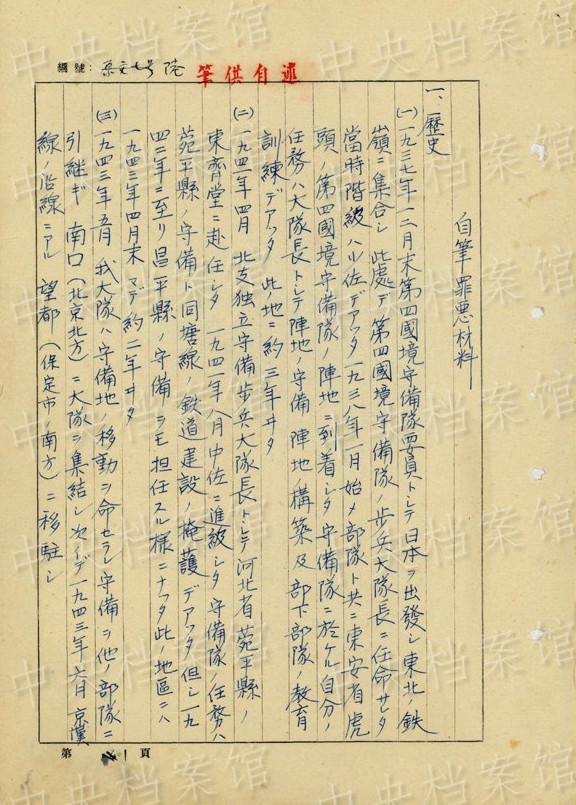 中央档案馆
編號：
自供述筆
自筆 罪悪材料
一、歷史
(一) 一九三七年一二月末第四國境守備隊要員トシテ日本ヲ出發シ東北ノ鉄
嶺ニ集合シ 此處デ第四國境守備隊ノ歩兵大隊長ニ任命サレタ
當時階級ハ少佐デアツタ 一九三八年一月始メ部隊ト共ニ東安省虎
頭ノ第四國境守備隊ノ陣地ニ到着シタ 守備隊ニ於ケル自分ノ
任務ハ大隊長トシテ陣地ノ守備 陣地ノ構築及部下部隊ノ教育
訓練デアツタ 此ノ地ニ約三年ヰタ
(二) 一九四一年四月 北支独立守備歩兵大隊長トシテ河北省苑平縣ノ
東齊堂ニ赴任シタ 一九四一年八月中佐ニ進級シタ 守備隊ノ任務ハ
苑平縣ノ守備ト同塘線ノ鉄道建設ノ掩護デアツタ 但シ一九
四二年ニ至リ昌平縣ノ守備ヲモ担任スル様ニナツタ此ノ地區ニハ
一九四三年四月末マデ約二年ヰタ
(三) 一九四三年五月 我大隊ハ守備地ノ移動ヲ命セラレ守備ヲ他ノ部隊ニ
引継ギ 南口(北京北方)ニ大隊ヲ集結シ次イデ一九四三年六月 京漢
線ノ沿線ニアル 望都(保定市ノ南方)ニ移駐シ
第 1 頁